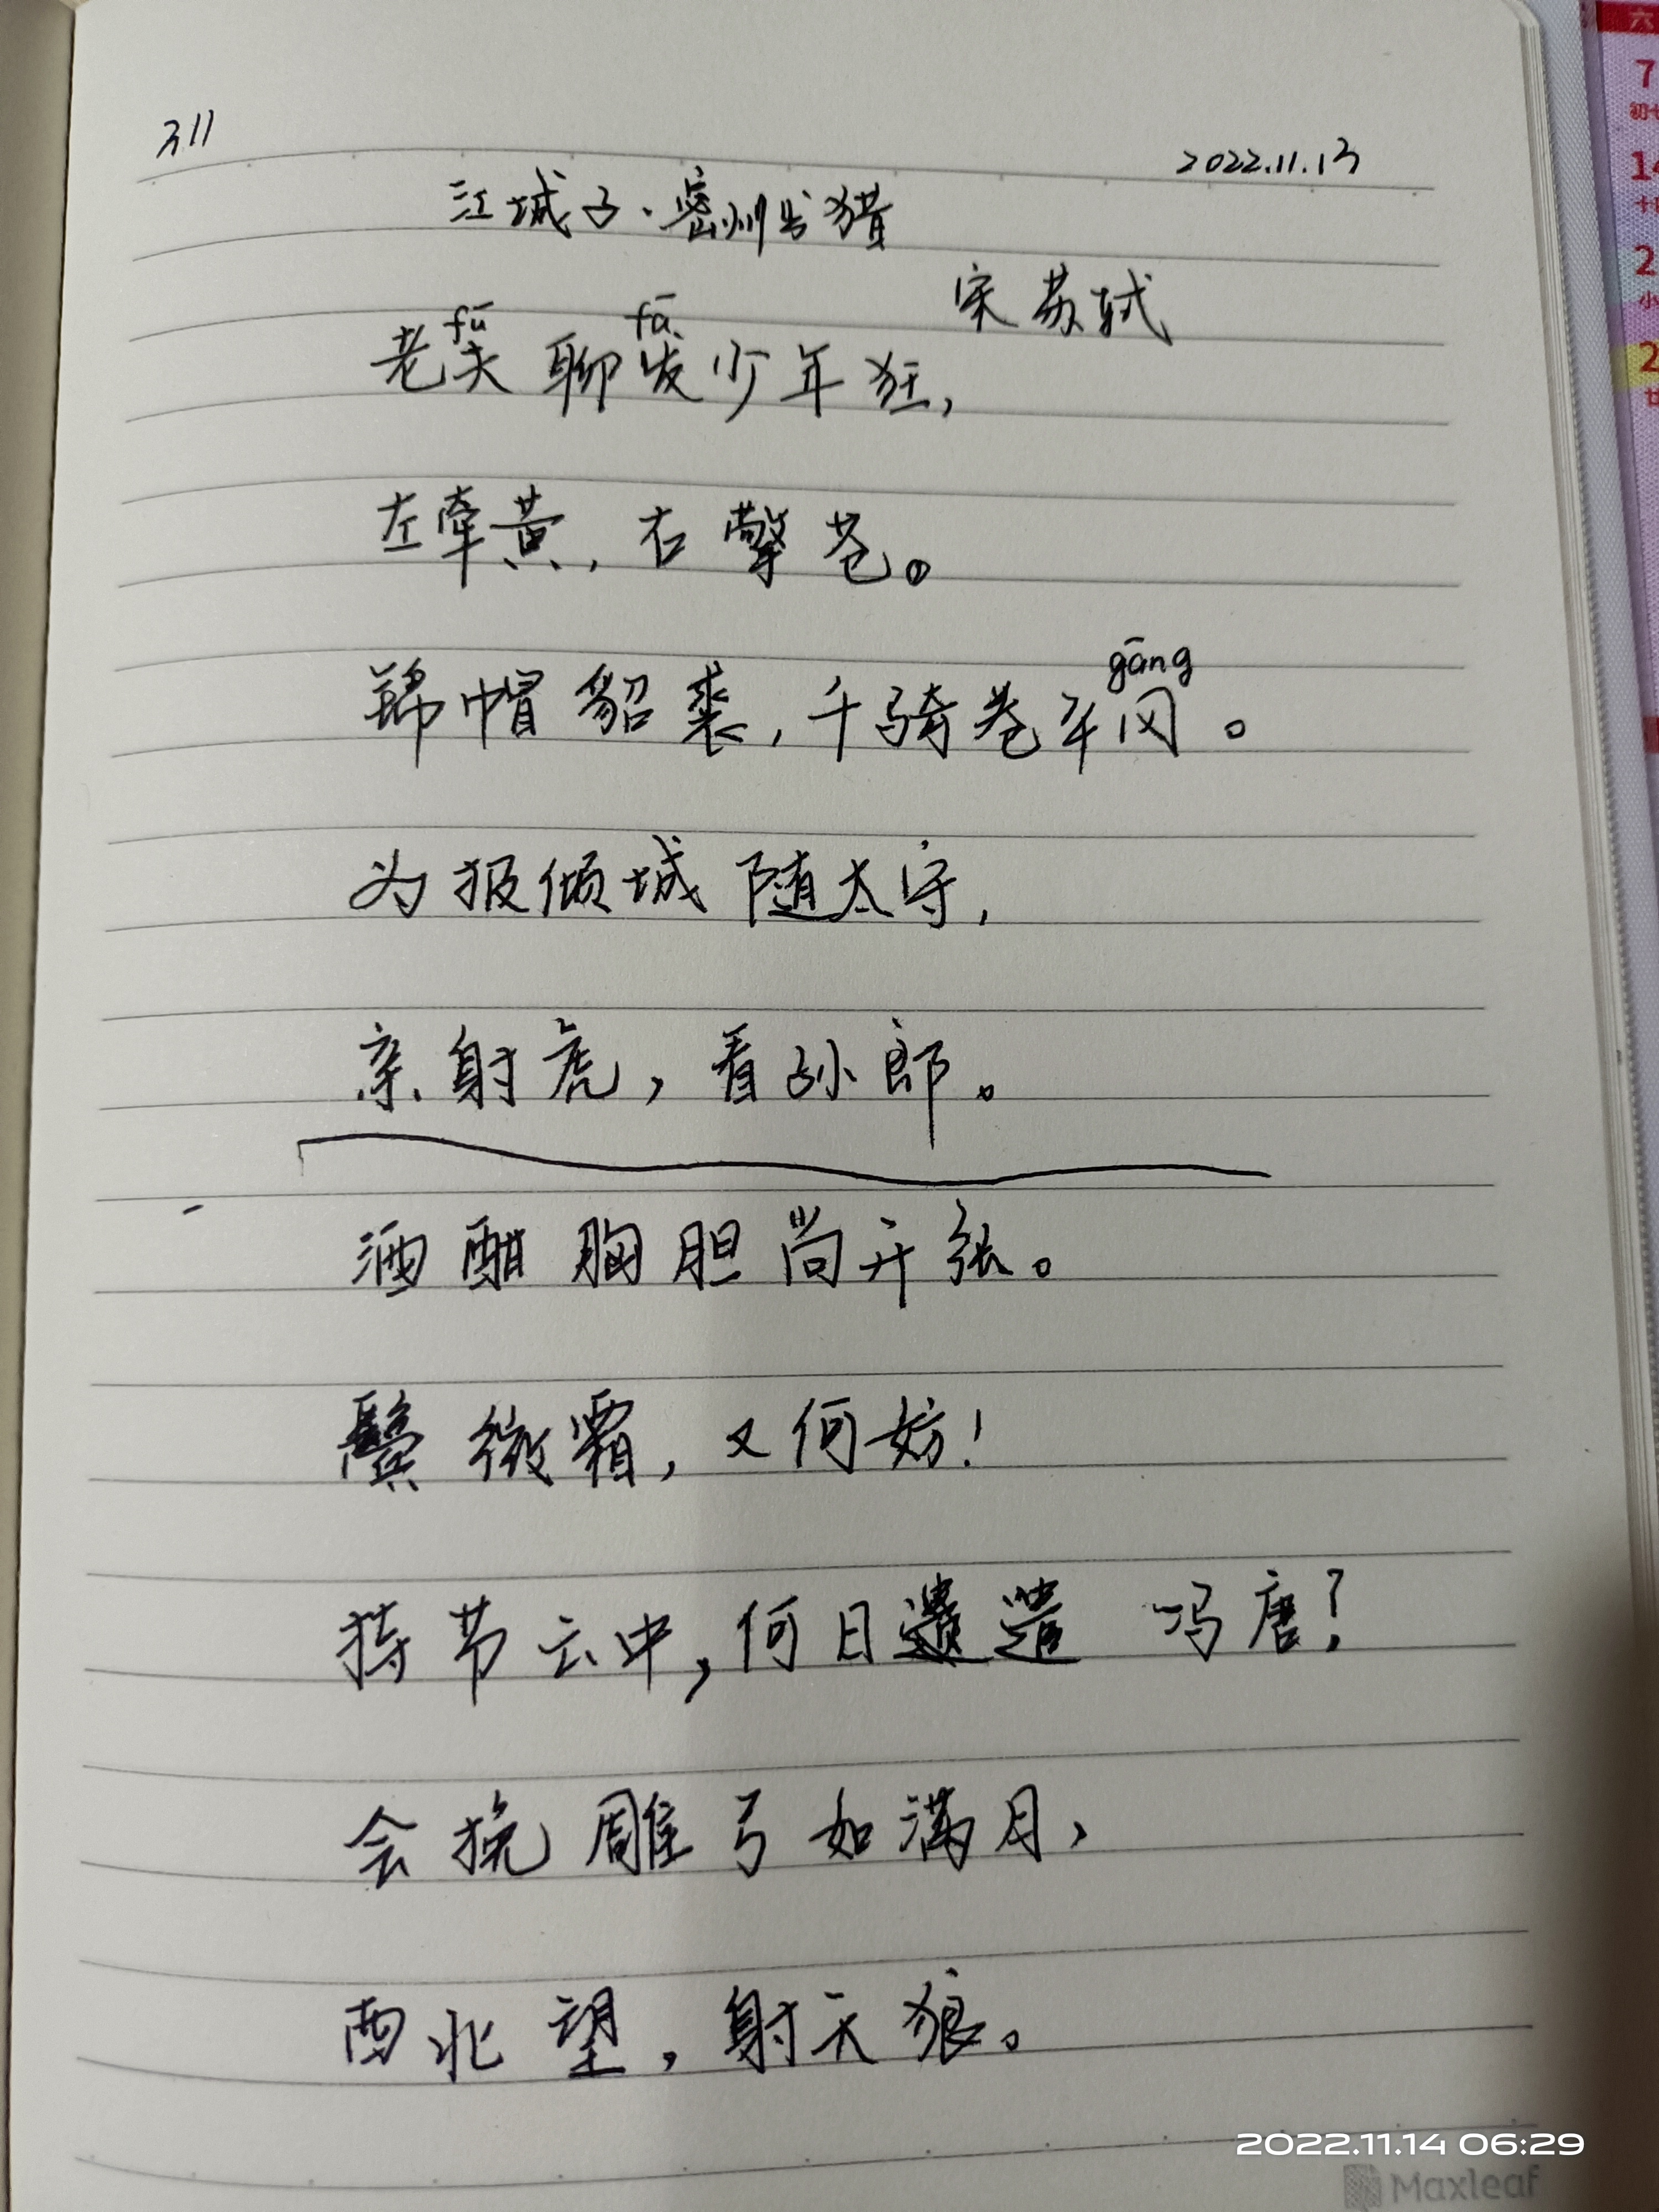 311
2022.11.13
江城子·密州出猎
宋 苏轼
fū fā
老夫聊发少年狂,
左牵黄,右擎苍。
gāng
锦帽貂裘,千骑卷平冈。
为报倾城随太守,
亲射虎,看孙郎。
酒酣胸胆尚开张。
鬓微霜,又何妨!
持节云中,何日遣 冯唐?
会挽雕弓如满月,
西北望,射天狼。
2022.11.14 06:29
Maxleaf
六
7
初七
14
2
小
2
廿